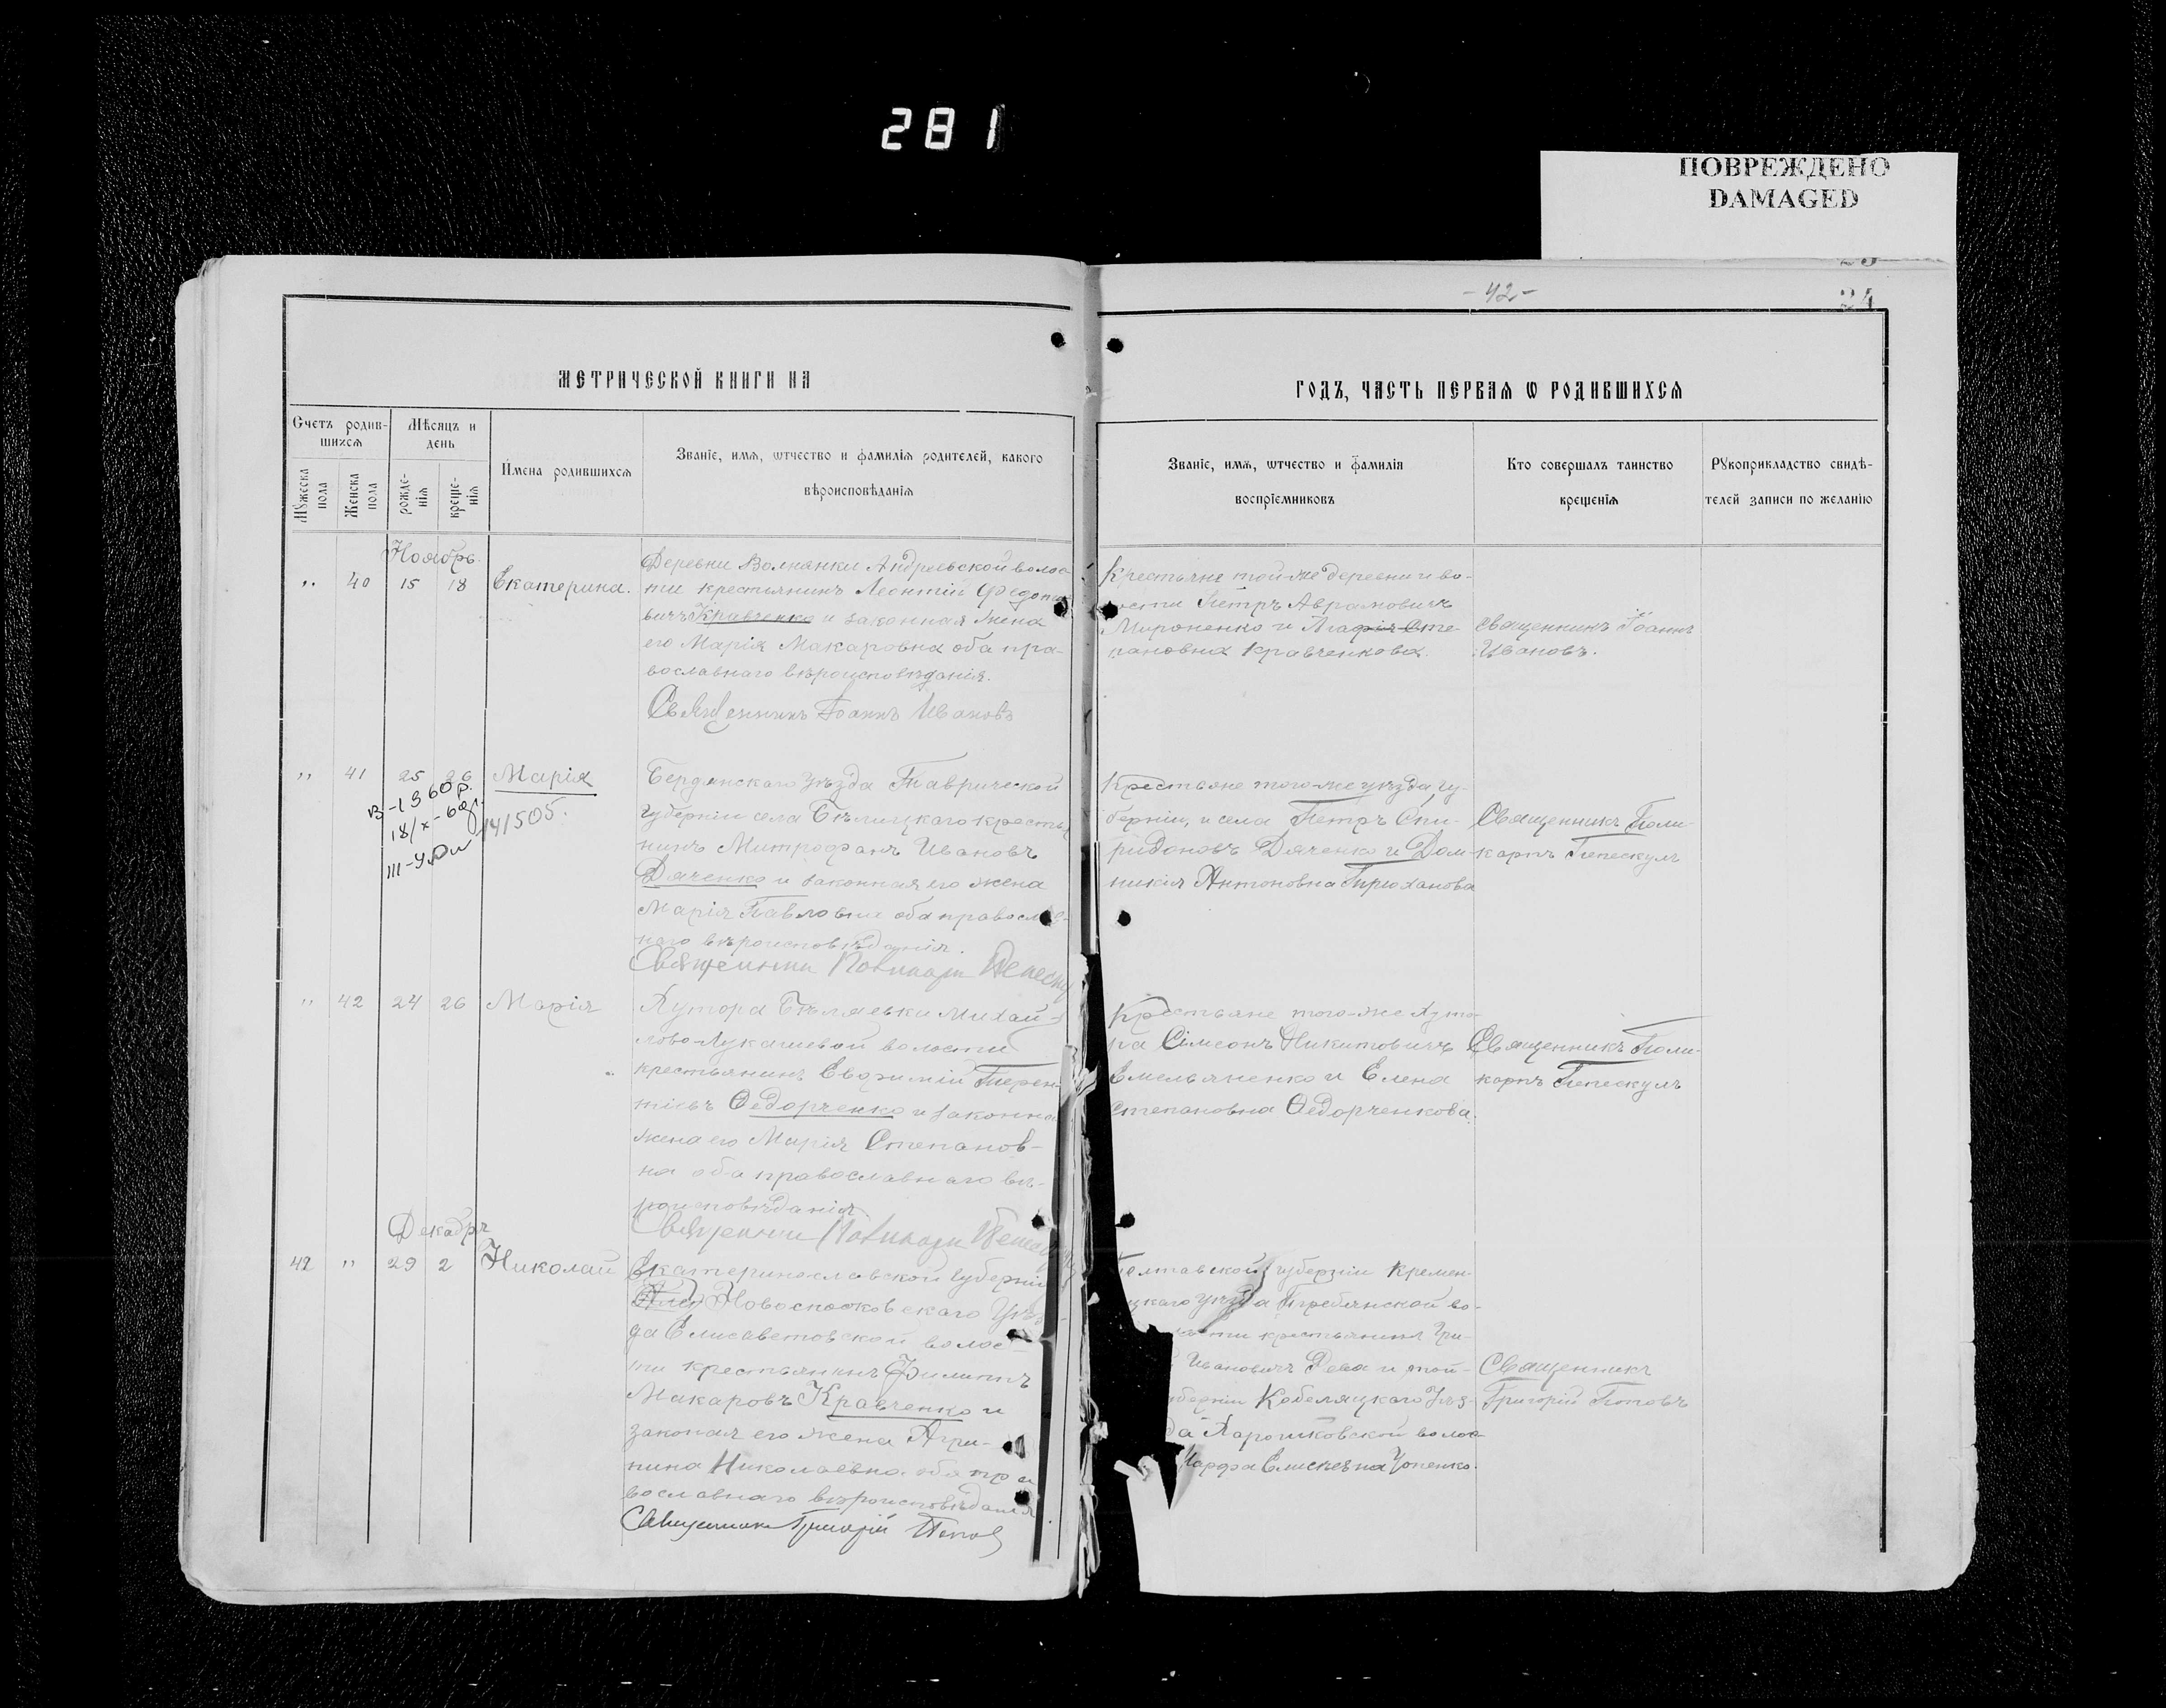 281
ПОВРЕЖДЕНО
DAMAGED
- 42 -
24
МЕТРИЧЕСКОЙ КНИГИ НА
ГОДЪ, ЧАСТЬ ПЕРВАЯ Ѡ РОДИВШИХСЯ
Счетъ родив-
шихся
Мѣсяцъ и
день
Мужеска
пола
Женска
пола
рожде-
нія
креще-
нія
Имена родившихся
Званіе, имя, ѡтчество и фамилія родителей, какого
вѣроисповѣданія
Званіе, имя, ѡтчество и фамилія
воспріемниковъ
Кто совершалъ таинство
крещенія
Рукоприкладство свидѣ-
телей записи по желанію
Ноябрь.
" 40 15 18 Екатерина.
Деревни Волнянки Андреевской волос
ти крестьянинъ Леонтій Федото
вичъ Кравченко и законная жена
его Марія Макаровна оба пра-
вославнаго вѣроисповѣданія.
Священникъ Іоаннъ Ивановъ
Крестьяне той-же деревни и во-
лости Петръ Аврамовичъ
Мироненко и Агафія Сте-
пановна Кравченкова.
Священникъ Іоаннъ
Ивановъ.
" 41 25 26 Марія
-1960р.
18/X-60г.
141505.
Бердянскаго уѣзда Таврической
губерніи села Бѣлицкаго крестья
нинъ Митрофанъ Ивановъ
Дяченко и законная его жена
Марія Павловна оба православ-
наго вѣроисповѣданія.
Крестьяне того-же уѣзда, гу-
берніи, и села Петръ Спи-
ридоновъ Дяченко и Дом-
никія Антоновна Тирюханова
Священникъ Поли-
карпъ Пепескулъ
" 42 24 26 Марія
Хутора Бѣляевки Михай-
лово-Лукашевой волости
крестьянинъ Евфимій Терен-
тіевъ Ѳедорченко и законная
жена его Марія Степанов-
на оба православнаго вѣ-
роисповѣданія
Крестьяне того-же хуто-
ра Сімеонъ Никитовичъ
Емельяненко и Елена
Степановна Ѳедорченкова.
Священникъ Поли-
карпъ Пепескулъ
Декабрь
42 " 29 2 Николай
Екатеринославской губерніи
Новомосковскаго Уѣз-
да Елисаветовской волос-
ти крестьянинъ Филиппъ
Макаровъ Кравченко и
законая его жена Агри-
пина Николаевна оба пра
вославнаго вѣроисповѣданія.
Священникъ Григорій Попов
Полтавской губерніи Кремен-
цкаго уѣзда во-
лости крестьянинъ Гри-
Ивановичъ и той-
губерніи Кобеляцкаго Уѣз-
да волос-
Марфа
Священникъ
Григорій Поповъ